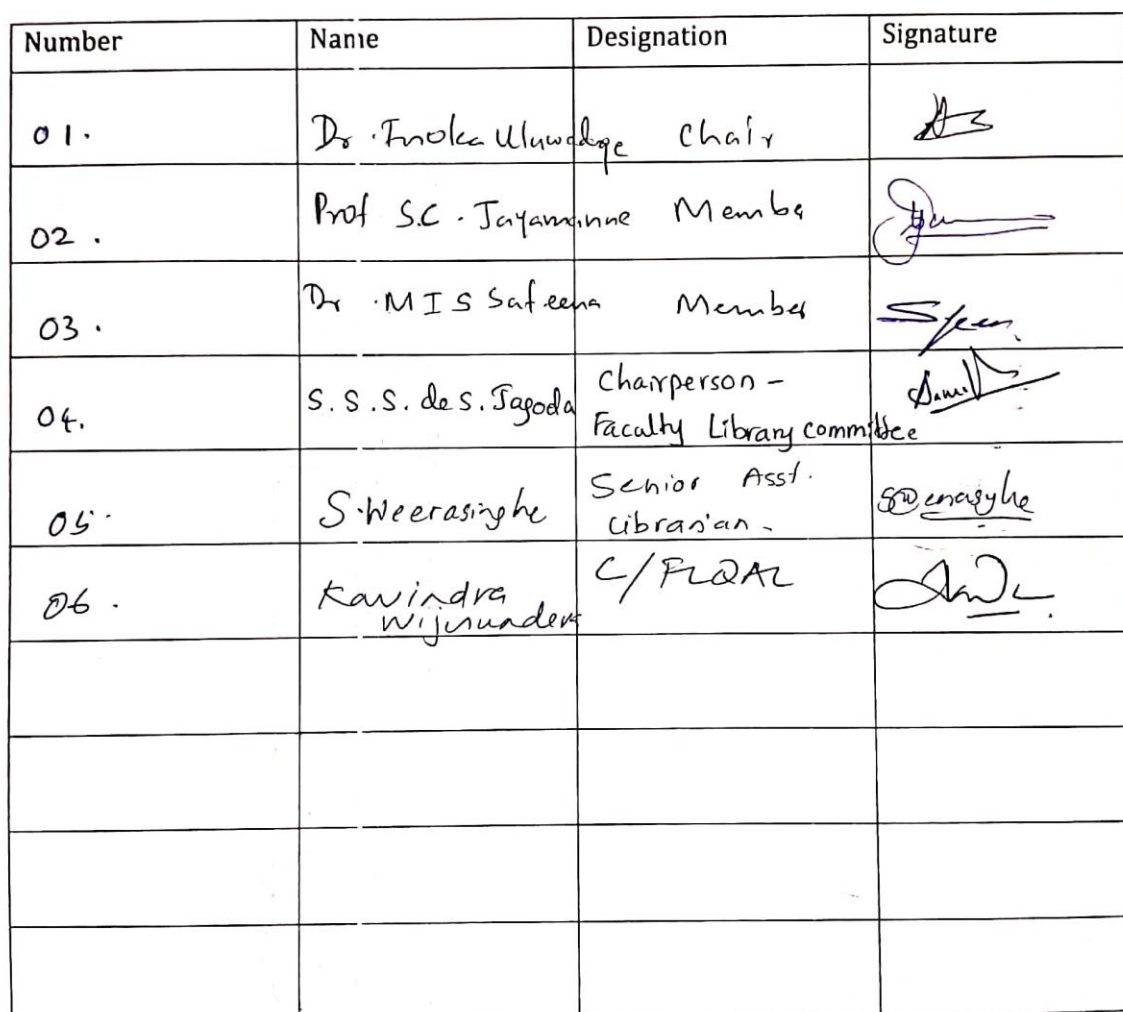 Number Name Designation Signature
01. Dr. Inoka Uluwaduge Chair
02. Prof S.C. Jayamanne Membe
03. Dr. M I S Safeena Member
04. S. S. S. de S. Jagoda Chairperson -
Faculty Library committee
05. S. Weerasinghe Senior Asst.
Librarian -
06. Kavindra C/FLQAC